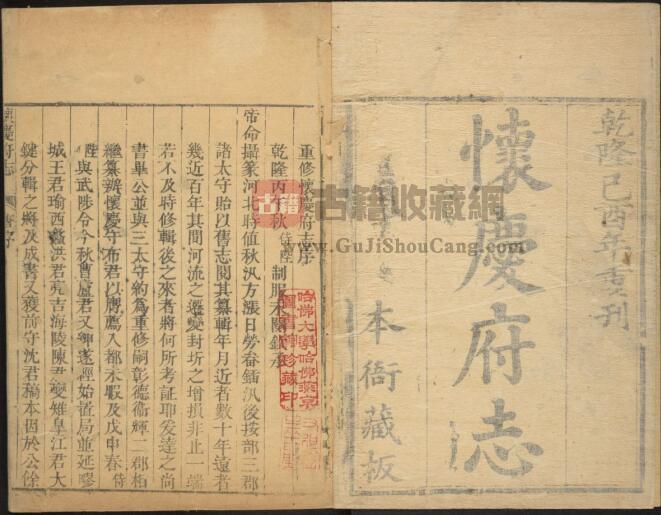 乾隆己酉年重刊
懷慶府志
本衙藏板
重修懷慶府志序
乾隆丙 秋侍陛 制服未闋欽承
帝命攝篆河北時值秋汛方漲日勞畚鍤汛後按部三郡
諸太守貽以舊志閱其纂輯年月近者數十年遠者
幾近百年其間河流之遷變封圻之增損非止一端
若不及時修輯後之來者將何所考証耶爰達之尚
書畢公並與三太守約為重修嗣彰德衞輝二郡相
繼纂辦懷慶守布君以膺薦入都未暇及戊申春侍
陛與武陟令今秋曹盧君又卿遂經始置局並延膠
城王君瑜西蠡洪君亮吉海陵陳君燮雉皐江君大
鍵分輯之將及成書又獲前守沈君稿本因於公餘
懷慶府志
序
古籍
古籍收藏網
www.GuJiShouCang.com
哈佛大學哈佛燕京
圖書館珍藏印